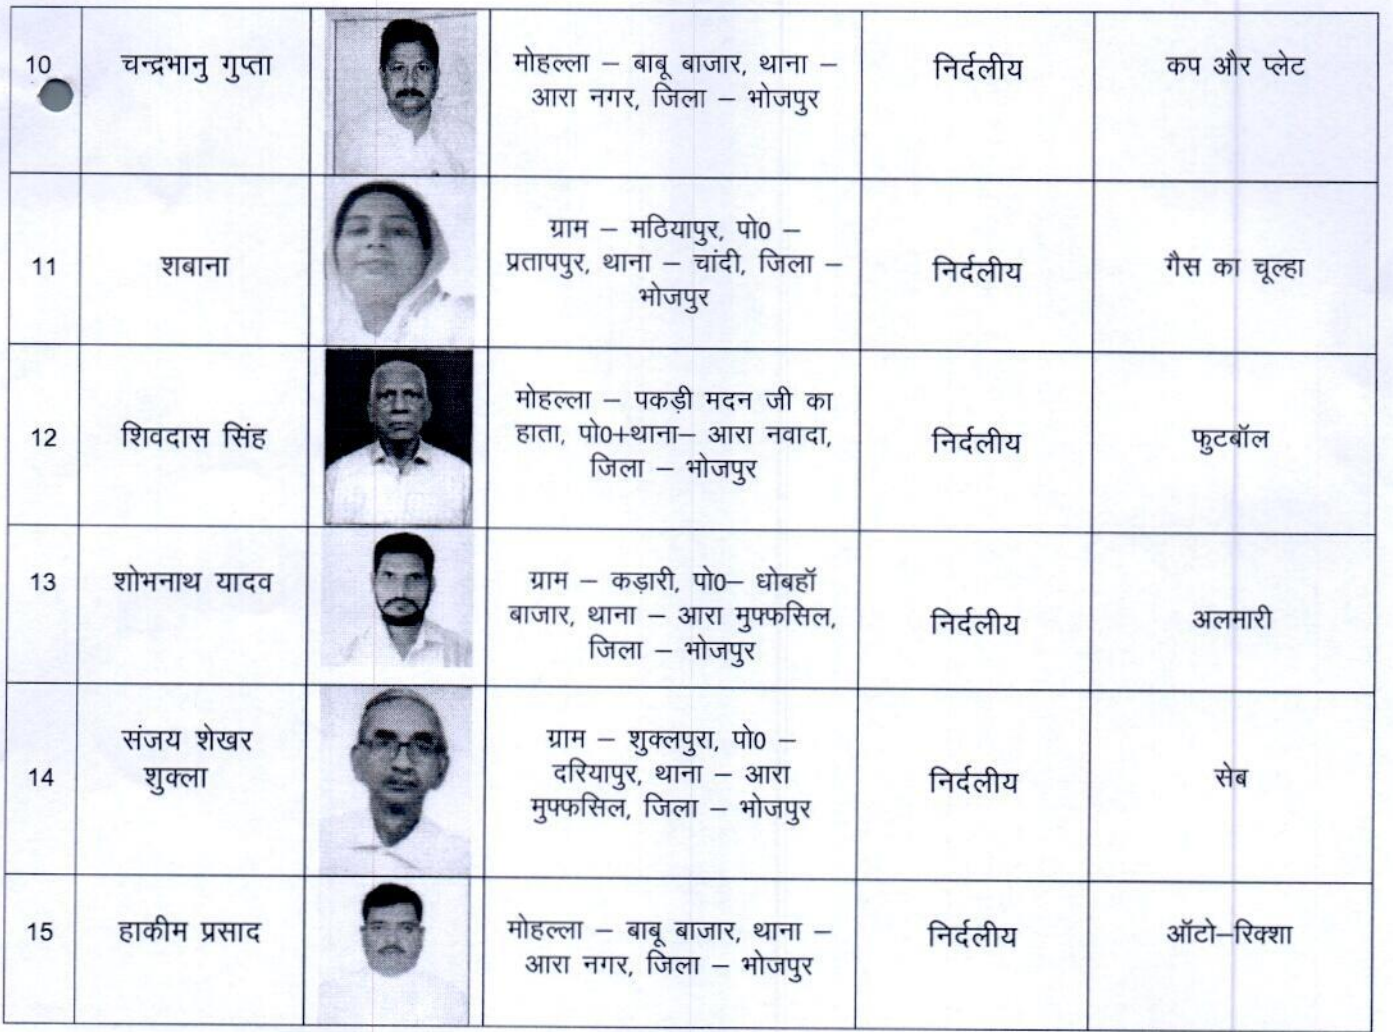 10
चन्द्रभानु गुप्ता
मोहल्ला – बाबू बाजार, थाना –
आरा नगर, जिला – भोजपुर
निर्दलीय
कप और प्लेट
11
शबाना
ग्राम – मठियापुर, पो0 –
प्रतापपुर, थाना – चांदी, जिला –
भोजपुर
निर्दलीय
गैस का चूल्हा
12
शिवदास सिंह
मोहल्ला – पकड़ी मदन जी का
हाता, पो0+थाना– आरा नवादा,
जिला – भोजपुर
निर्दलीय
फुटबॉल
13
शोभनाथ यादव
ग्राम – कड़ारी, पो0– धोबहॉ
बाजार, थाना – आरा मुफ्फसिल,
जिला – भोजपुर
निर्दलीय
अलमारी
14
संजय शेखर
शुक्ला
ग्राम – शुक्लपुरा, पो0 –
दरियापुर, थाना – आरा
मुफ्फसिल, जिला – भोजपुर
निर्दलीय
सेब
15
हाकीम प्रसाद
मोहल्ला – बाबू बाजार, थाना –
आरा नगर, जिला – भोजपुर
निर्दलीय
ऑटो–रिक्शा